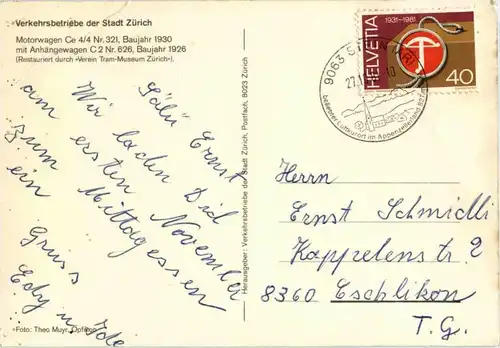 Verkehrsbetriebe der Stadt Zürich
Motorwagen Ce 4/4 Nr. 321, Baujahr 1930
mit Anhängewagen C 2 Nr. 626, Baujahr 1926
(Restauriert durch «Verein Tram-Museum Zürich»).
Sälü Ernst
Wir laden Did
am ersten November
zum Mittagessen
ein
Gruss
Edy u. Ida
Foto: Theo Muyr, Opfikon
Herausgeber: Verkehrsbetriebe der Stadt Zürich, Postfach, 8023 Zürich
9063 STEIN
beliebter Luftkurort im Appenzellerland
HELVETIA
1931-1981
40
Herrn
Ernst Schmidli
Kappelenstr 2
8360 Eschlikon
T. G.